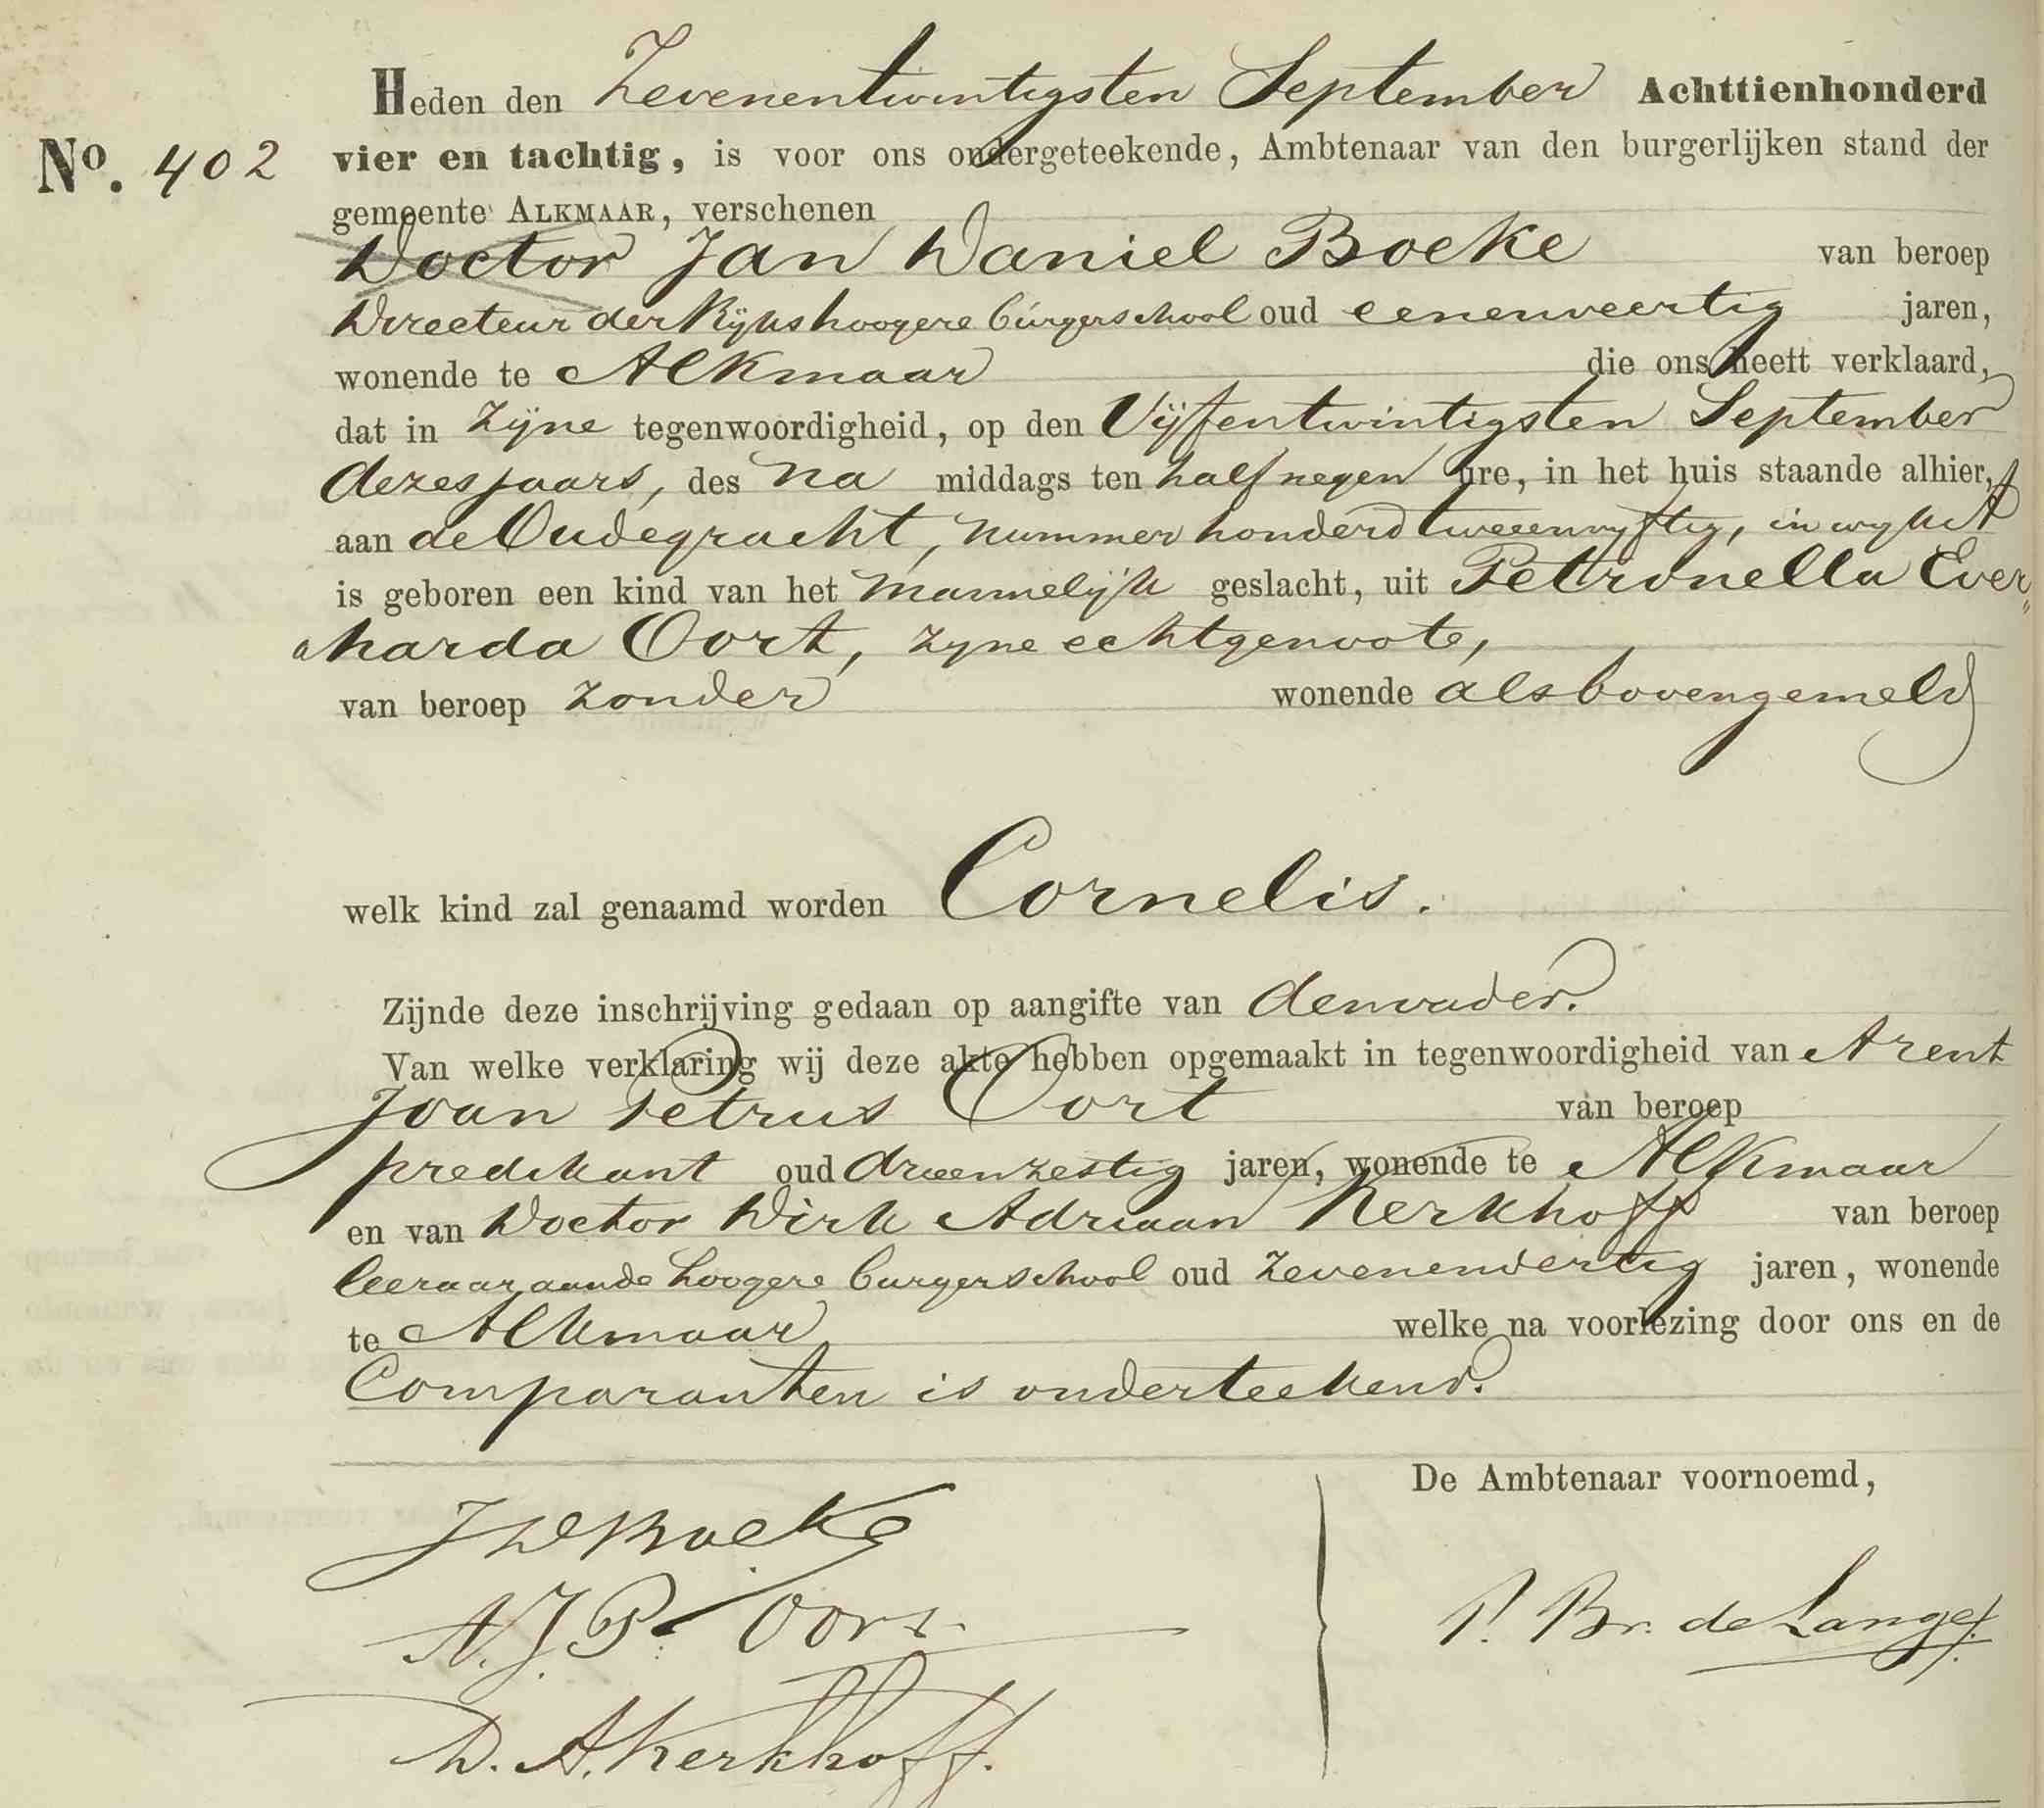 Heden den Zevenentwintigsten September Achttienhonderd
No. 402
vier en tachtig, is voor ons ondergeteekende, Ambtenaar van den burgerlijken stand der
gemeente ALKMAAR, verschenen
Doctor Jan Daniel Boeke van beroep
Directeur der Rijks hoogere burgerschool oud eenenveertig jaren,
wonende te Alkmaar die ons heeft verklaard,
dat in zijne tegenwoordigheid, op den Vijfentwintigsten September
dezes jaars, des na middags ten half negen ure, in het huis staande alhier,
aan de Oudegracht, nummer honderd tweeenvyftig, in wyk A
is geboren een kind van het mannelijk geslacht, uit Petronella Ever„
harda Oort, zyne echtgenoote,
van beroep zonder wonende als bovengemeld
welk kind zal genaamd worden Cornelis.
Zijnde deze inschrijving gedaan op aangifte van den vader.
Van welke verklaring wij deze akte hebben opgemaakt in tegenwoordigheid van Arent
Joan Petrus Oort van beroep
predikant oud drieenzestig jaren, wonende te Alkmaar
en van Doctor Dirk Adriaan Kerkhoff van beroep
leeraar aan de hoogere burgerschool oud zevenendertig jaren, wonende
te Alkmaar welke na voorlezing door ons en de
Comparanten is onderteekend.
De Ambtenaar voornoemd,
JDBoeke
A.J.P. Oort
P. Br. de Lange.
D. A. Kerkhoff.